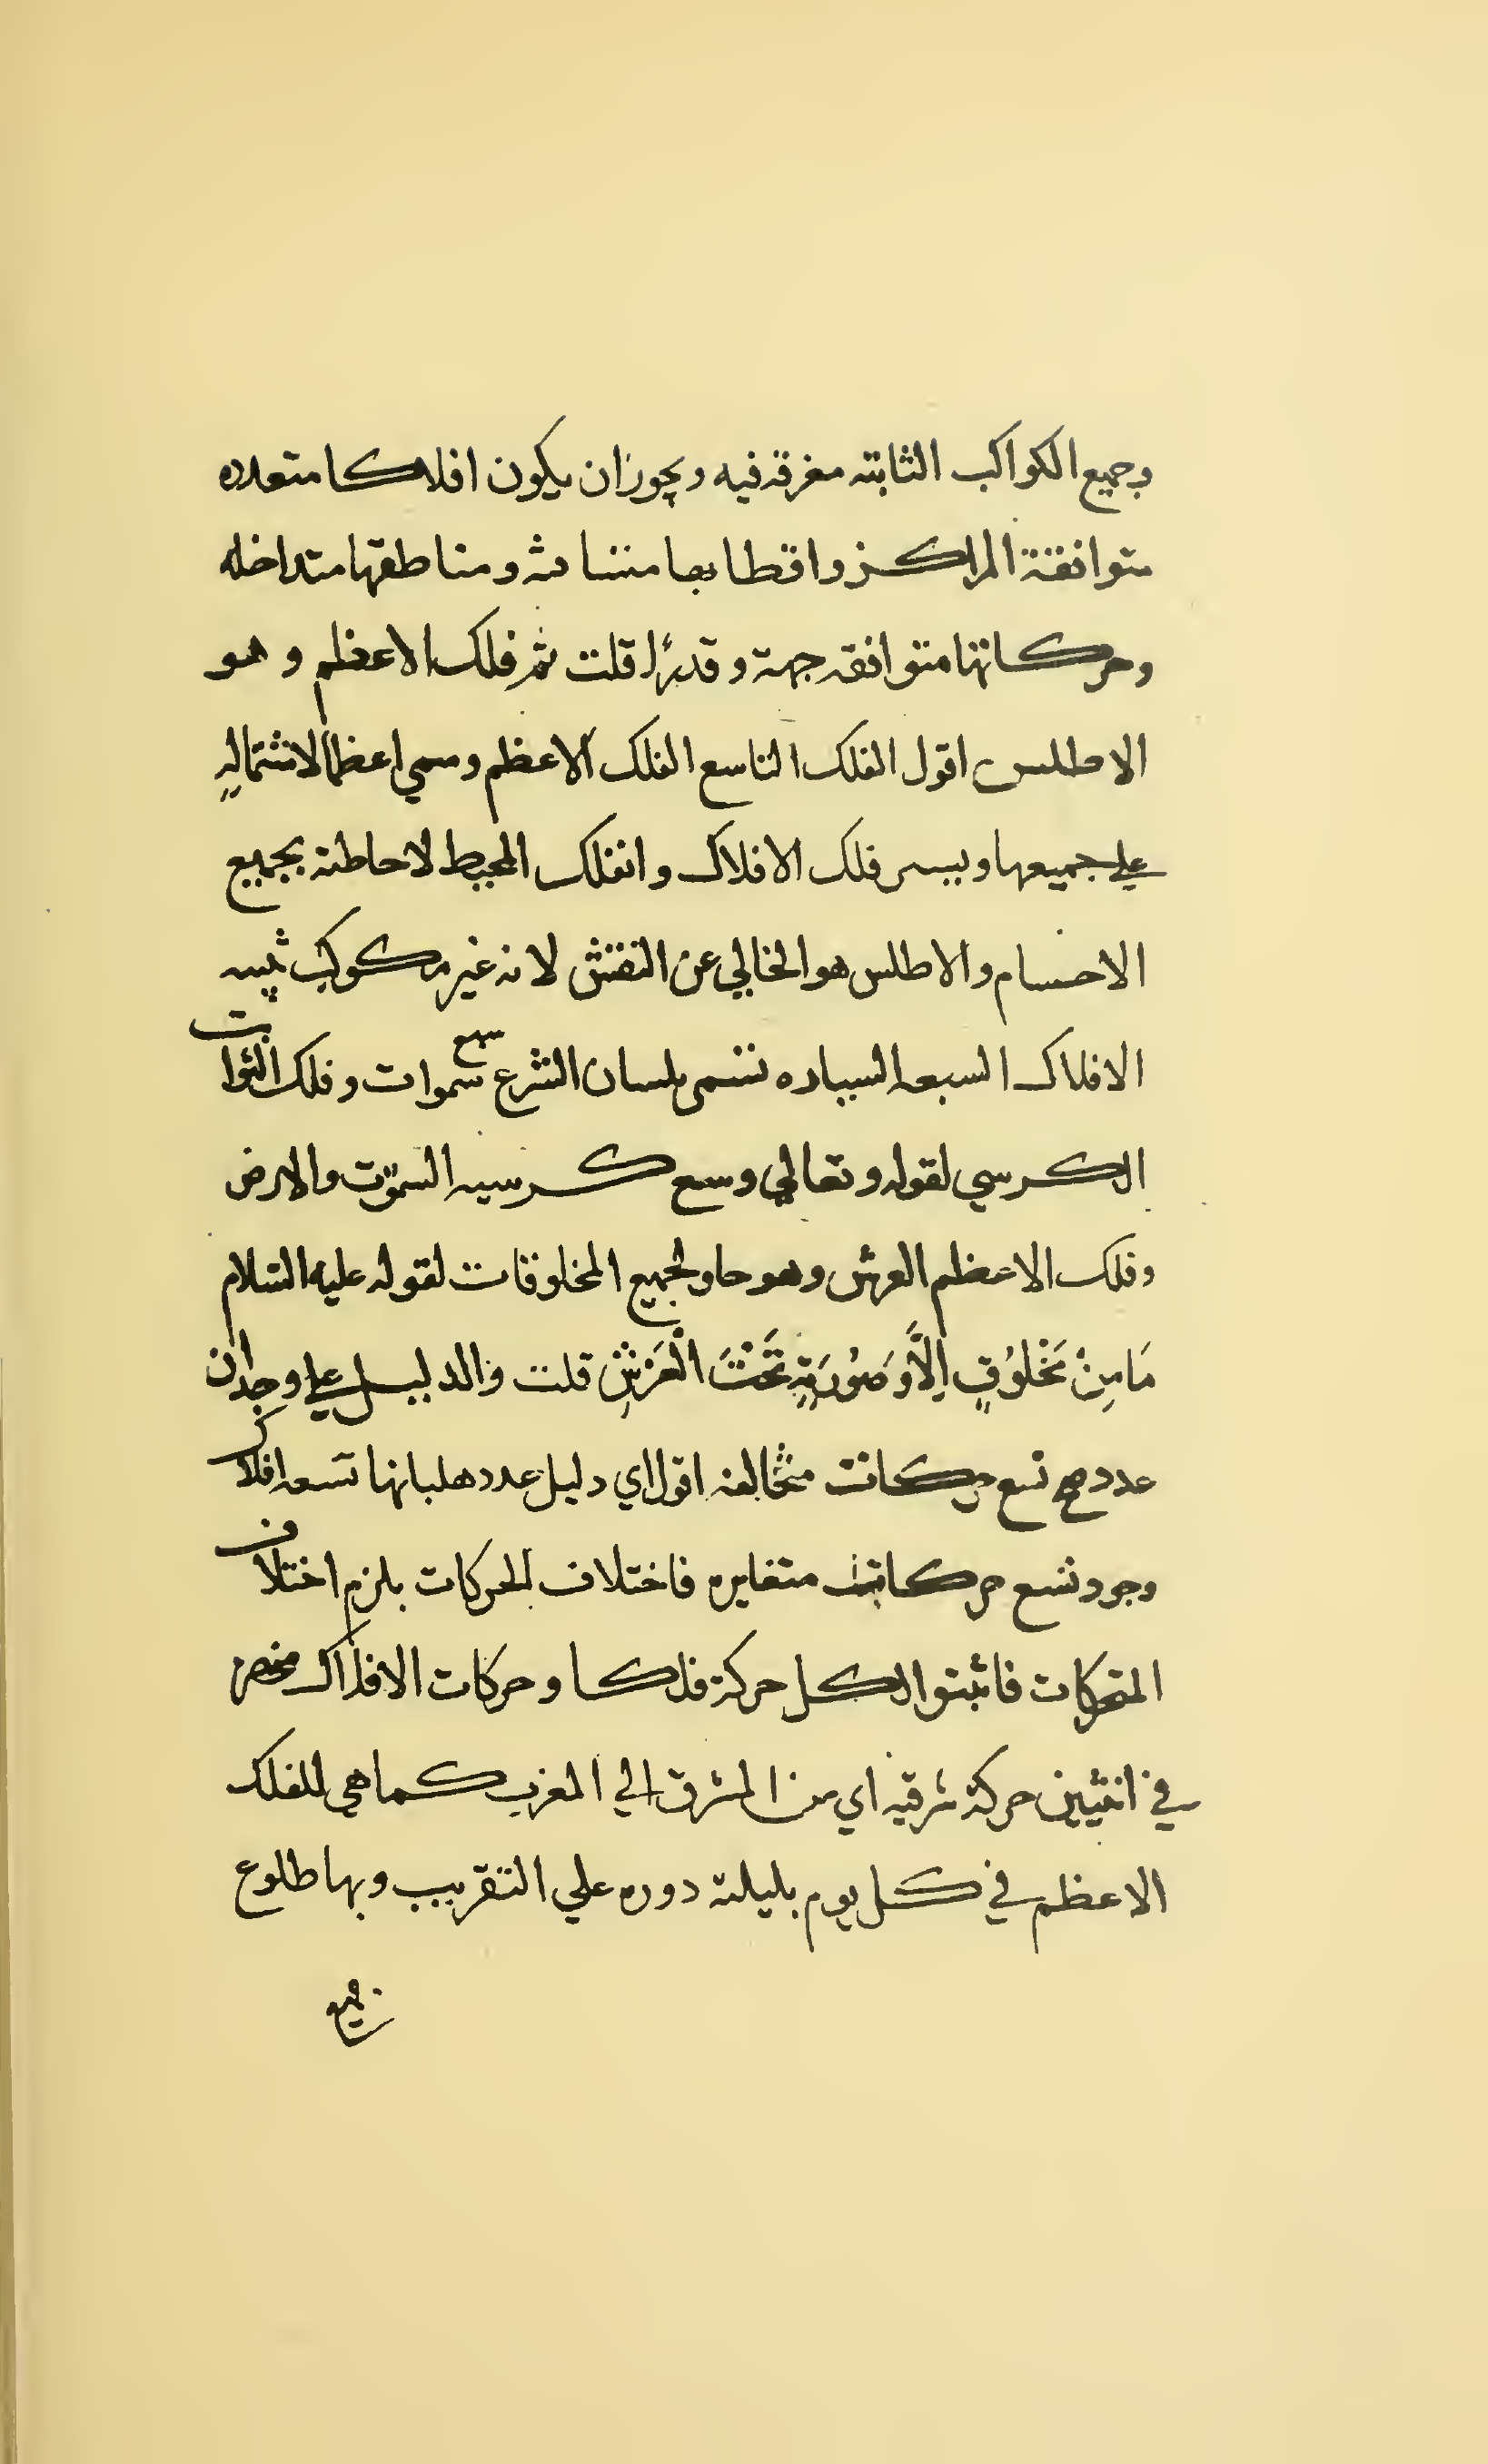 وجميع الكواكب الثابته مغرقة فيه ويجوز ان يكون افلاكا متعدده
متوافقة المراكز واقطابها متسامته ومناطقها متداخله
وحركاتها متوافقه جهة وقدرًا قلت ثم فلك الاعظم وهو
الاطلس اقول الفلك التاسع الفلك الاعظم وسمي اعظما لاشتماله
علي جميعها ويسمى فلك الافلاك والفلك المحيط لاحاطته بجميع
الاجسام والاطلس هو الخالي عن النقش لانه غير مكوكب تنبيه
الافلاك السبعه السياره تسمى بلسان الشرع سبع سموات وفلك الثوابت
الكرسي لقوله وتعالي وسع كرسيه السموت والارض
وفلك الاعظم العرش وهو حاو لجميع المخلوقات لقوله عليه السلام
مَا مِنْ مَخْلُوُقٍ اِلاَّ وَصُوُرَتِهِ تَحْتَ الْعَرْشِ قلت والدليل علي وجدان
عددهم تسع حركات متخالفه اقول اي دليل عددها بانها تسعه افلاك
وجود تسع حركات متغايره فاختلاف الحركات يلزم اختلاف
المتحركات فاثبتوا لكل حركة فلكا وحركات الافلاك منحصره
في اثنين حركة شرقيه اي من المشرق الي المغرب كما هي للفلك
الاعظم في كل يوم بليلته دوره علي التقريب وبها طلوع
جميع